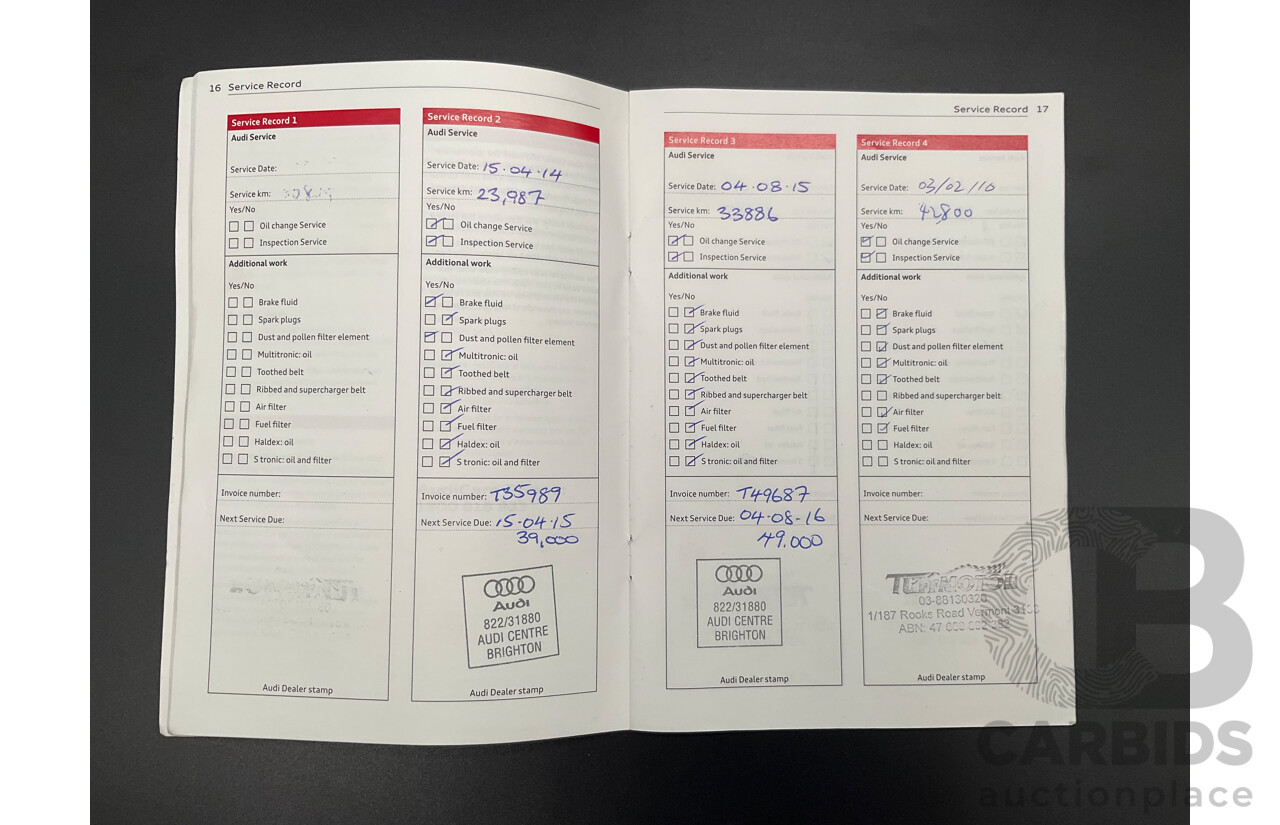 16 Service Record
Service Record 1
Audi Service
Service Date:
Service km:
Yes/No
Oil change Service
Inspection Service
Additional work
Yes/No
Brake fluid
Spark plugs
Dust and pollen filter element
Multitronic: oil
Toothed belt
Ribbed and supercharger belt
Air filter
Fuel filter
Haldex: oil
S tronic: oil and filter
Invoice number:
Next Service Due:
Audi Dealer stamp
Service Record 2
Audi Service
Service Date: 15·04·14
Service km: 23,987
Yes/No
Oil change Service
Inspection Service
Additional work
Yes/No
Brake fluid
Spark plugs
Dust and pollen filter element
Multitronic: oil
Toothed belt
Ribbed and supercharger belt
Air filter
Fuel filter
Haldex: oil
S tronic: oil and filter
Invoice number: T35989
Next Service Due: 15·04·15
39,000
Audi
822/31880
AUDI CENTRE
BRIGHTON
Audi Dealer stamp
Service Record 17
Service Record 3
Audi Service
Service Date: 04·08·15
Service km: 33886
Yes/No
Oil change Service
Inspection Service
Additional work
Yes/No
Brake fluid
Spark plugs
Dust and pollen filter element
Multitronic: oil
Toothed belt
Ribbed and supercharger belt
Air filter
Fuel filter
Haldex: oil
S tronic: oil and filter
Invoice number: T49687
Next Service Due: 04·08·16
49.000
Audi
822/31880
AUDI CENTRE
BRIGHTON
Audi Dealer stamp
Service Record 4
Audi Service
Service Date: 03/02/10
Service km: 42800
Yes/No
Oil change Service
Inspection Service
Additional work
Yes/No
Brake fluid
Spark plugs
Dust and pollen filter element
Multitronic: oil
Toothed belt
Ribbed and supercharger belt
Air filter
Fuel filter
Haldex: oil
S tronic: oil and filter
Invoice number:
Next Service Due:
1/187 Rooks Road Vermont
ABN: 47
Audi Dealer stamp
CB
CARBIDS
auctionplace